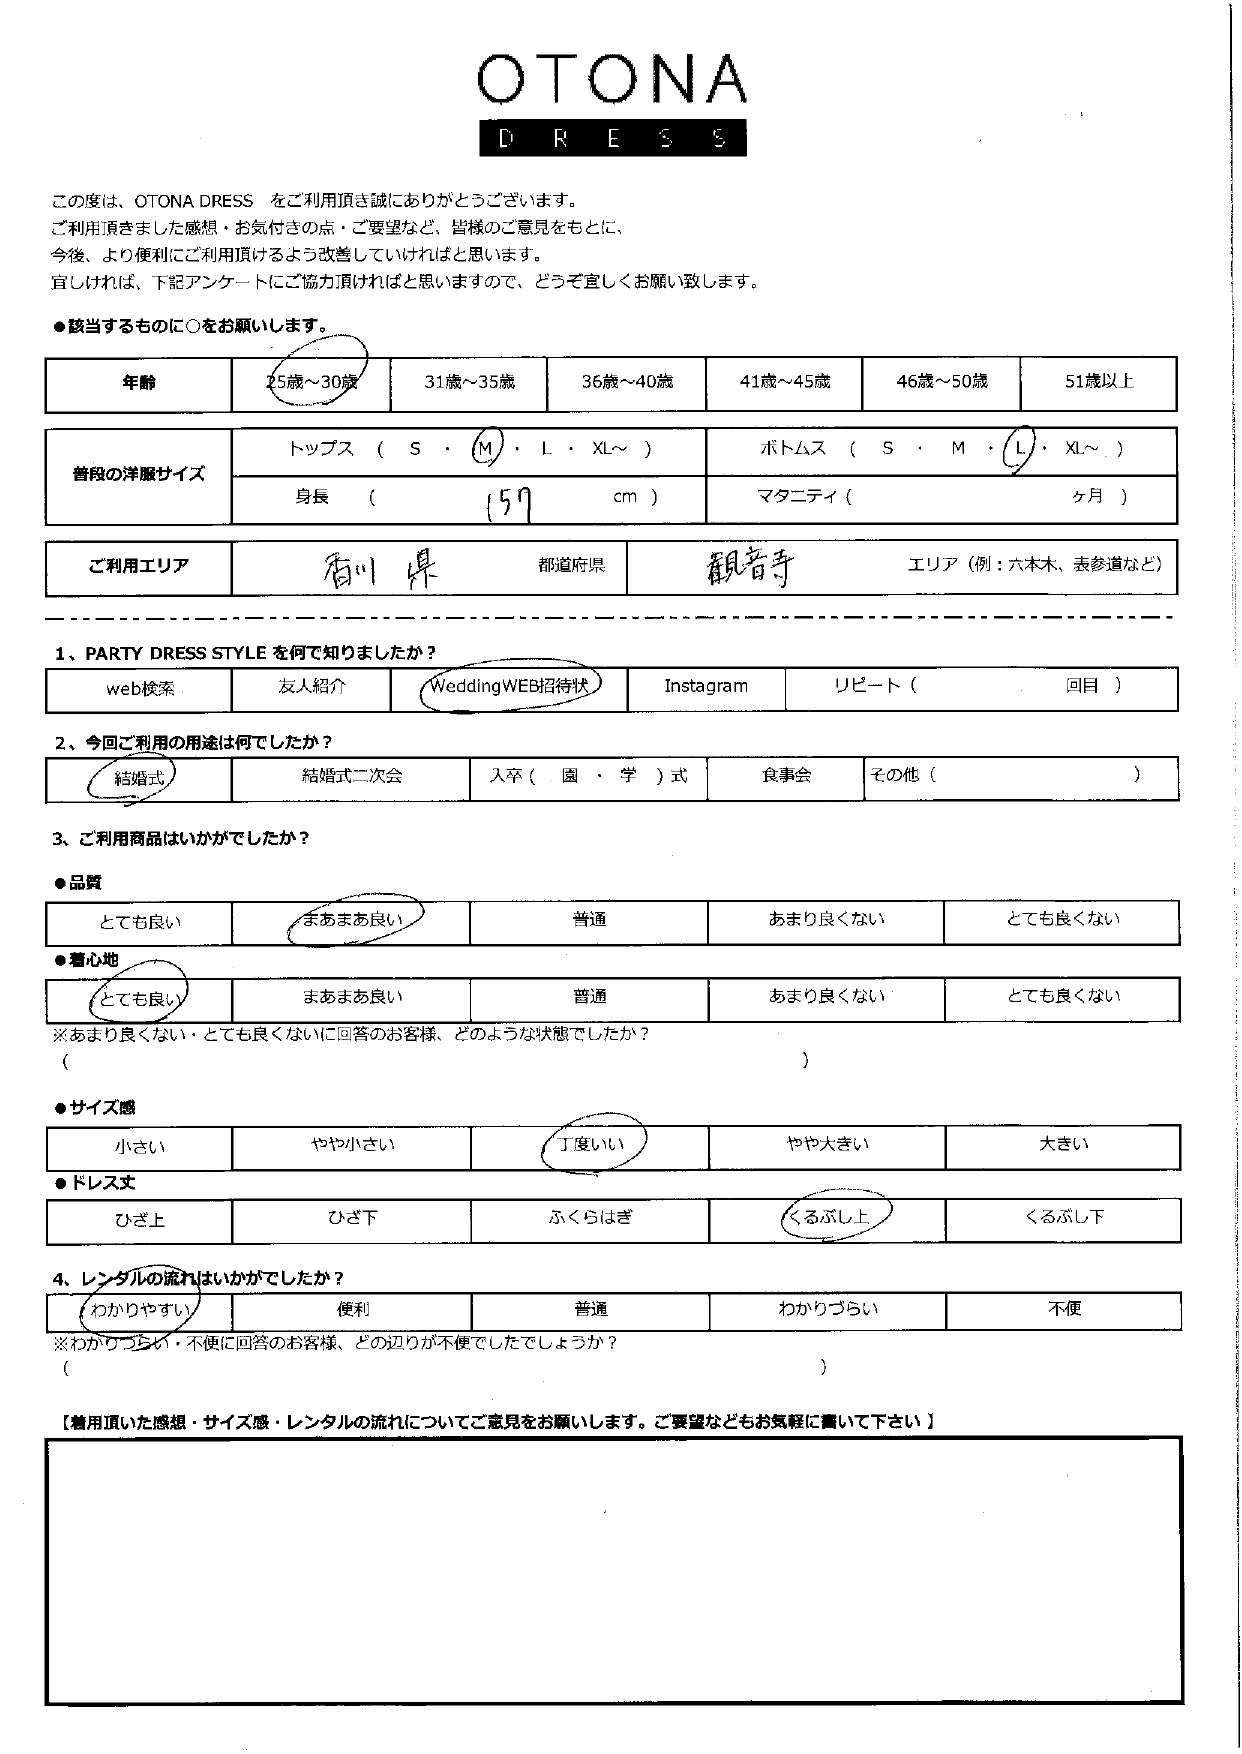 OTONA
DRESS
この度は、OTONA DRESS　をご利用頂き誠にありがとうございます。
ご利用頂きました感想・お気付きの点・ご要望など、皆様のご意見をもとに、
今後、より便利にご利用頂けるよう改善していければと思います。
宜しければ、下記アンケートにご協力頂ければと思いますので、どうぞ宜しくお願い致します。
●該当するものに○をお願いします。
年齢 25歳～30歳 31歳～35歳 36歳～40歳 41歳～45歳 46歳～50歳 51歳以上
普段の洋服サイズ トップス ( S ・ M ・ L ・ XL～ ) ボトムス ( S ・ M ・ L ・ XL～ )
身長 ( 157 cm ) マタニティ ( ヶ月 )
ご利用エリア 香川 県 都道府県 観音寺 エリア（例：六本木、表参道など）
1、PARTY DRESS STYLE を何で知りましたか？
web検索 友人紹介 WeddingWEB招待状 Instagram リピート ( 回目 )
2、今回ご利用の用途は何でしたか？
結婚式 結婚式二次会 入卒 ( 園 ・ 学 ) 式 食事会 その他 ( )
3、ご利用商品はいかがでしたか？
●品質
とても良い まあまあ良い 普通 あまり良くない とても良くない
●着心地
とても良い まあまあ良い 普通 あまり良くない とても良くない
※あまり良くない・とても良くないに回答のお客様、どのような状態でしたか？
( )
●サイズ感
小さい やや小さい 丁度いい やや大きい 大きい
●ドレス丈
ひざ上 ひざ下 ふくらはぎ くるぶし上 くるぶし下
4、レンタルの流れはいかがでしたか？
わかりやすい 便利 普通 わかりづらい 不便
※わかりづらい・不便に回答のお客様、どの辺りが不便でしたでしょうか？
( )
【着用頂いた感想・サイズ感・レンタルの流れについてご意見をお願いします。ご要望などもお気軽に書いて下さい 】